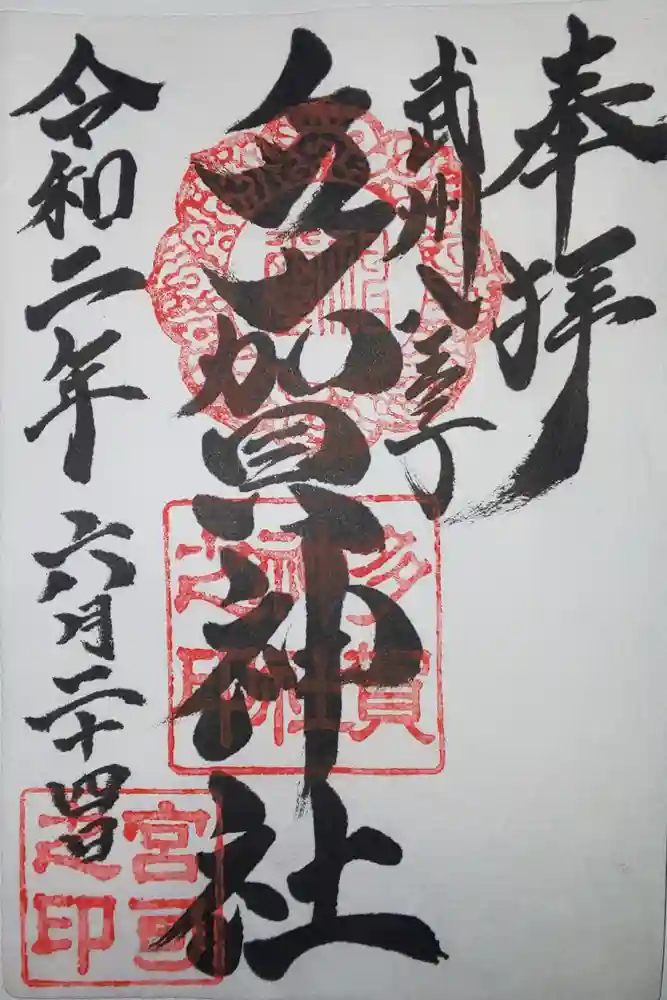 奉拝
武州八王子
多賀神社
令和二年六月二十四日
多賀
神社
之印
宮司
之印